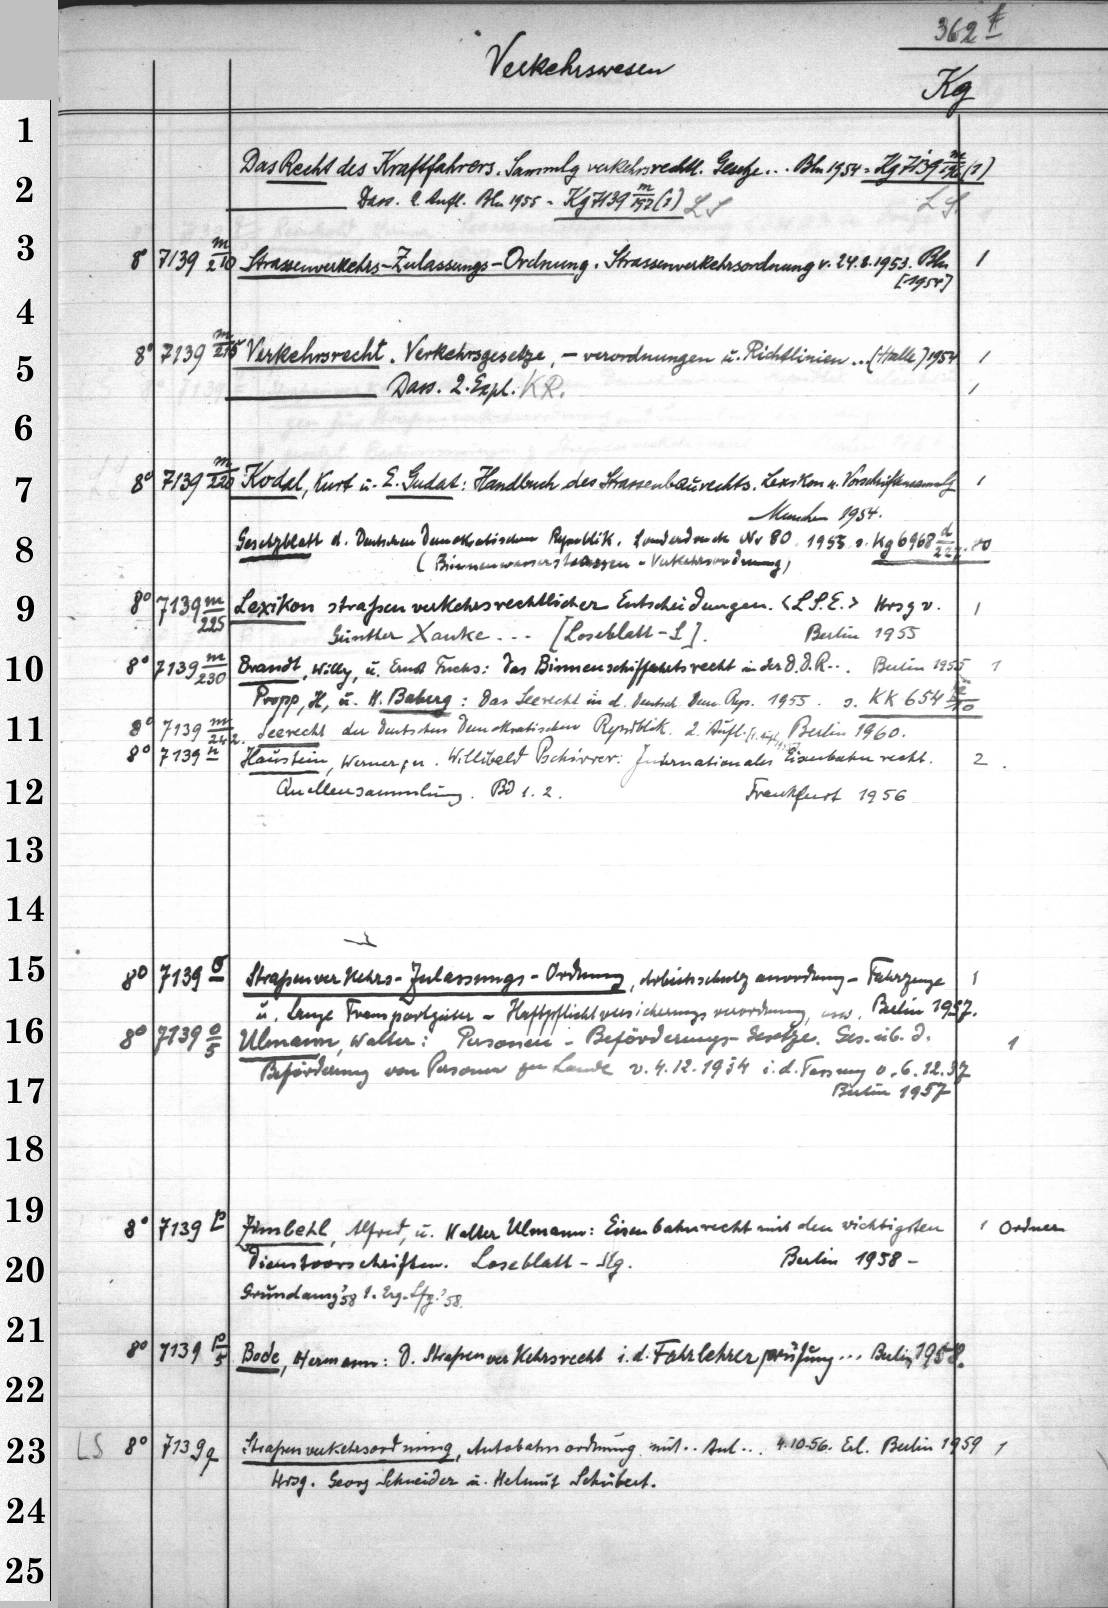 362 f
Verkehrswesen
Kg
1
Das Recht des Kraftfahrers. Sammlg verkehrsrechtl. Gesetze... Bln 1954 = Kg 7139 m/192 (1)
2
Dass. 2. Aufl. Bln 1955 = Kg 7139 m/192 (2) LS LS
3
8° 7139 m/210 Strassenverkehrs-Zulassungs-Ordnung. Strassenverkehrsordnung v. 24.8.1953. Bln 1
[1954]
4
8° 7139 m/215 Verkehrsrecht. Verkehrsgesetze, - verordnungen u. Richtlinien... (Halle) 1954 1
5
Dass. 2. Expl. KR. 1
6
7
8° 7139 m/220 Kodal, Kurt u. E. Gudat: Handbuch des Strassenbaurechts. Lexikon u. Vorschriftensammlg 1
München 1954.
8
Gesetzblatt d. Deutschen Demokratischen Republik. Sonderdruck Nr 80. 1955 s. Kg 6968 d/227.80
(Binnenwasserstrassen-Verkehrsordnung)
9
8° 7139 m/225 Lexikon straßenverkehrsrechtlicher Entscheidungen. <L.S.E.> Hrsg v. 1
Günther Xanke... [Loseblatt-S]. Berlin 1955
10
8° 7139 m/230 Brandt, Willy, u. Ernst Fuchs: Das Binnenschiffahrtsrecht in der D.D.R... Berlin 1955 1
Propp, H, u. H. Baberg: Das Seerecht in d. Deutsch. Dem. Rep. 1955. s. KK 654
11
8° 7139 m/242. Seerecht der Deutschen Demokratischen Republik. 2. Aufl. Berlin 1960.
8° 7139 n Haustein, Werner, u. Willibald Pschirrer: Internationales Eisenbahnrecht. 2.
12
Quellensammlung. Bd 1. 2. Frankfurt 1956
13
14
15
8° 7139 o Straßenverkehrs-Zulassungs-Ordnung, Arbeitsschutzanordnung-Fahrzeuge 1
u. lange Transportgüter - Haftpflichtversicherungsverordnung, usw. Berlin 1957.
16
8° 7139 o/5 Ulmann, Walter: Personen-Beförderungs-Gesetze. Ges. üb. d. 1
Beförderung von Personen zu Lande v. 4.12.1934 i.d. Fassung v. 6.12.37
17
Berlin 1957
18
19
8° 7139 p Zimbehl, Alfred, u. Walter Ulmann: Eisenbahnrecht mit den wichtigsten 1 Ordner
20
Dienstvorschriften. Loseblatt-Slg. Berlin 1958 -
Grundausg '58 1. Erg.-Lfg. '58.
21
8° 7139 p/5 Bode, Hermann: D. Straßenverkehrsrecht i.d. Fahrlehrerprüfung... Berlin 1958.
22
23
LS 8° 7139 q Straßenverkehrsordnung, Autobahnordnung mit.. Anl... 4.10.56. Erl. Berlin 1959 1
Hrsg. Georg Schneider u. Helmut Schubert.
24
25